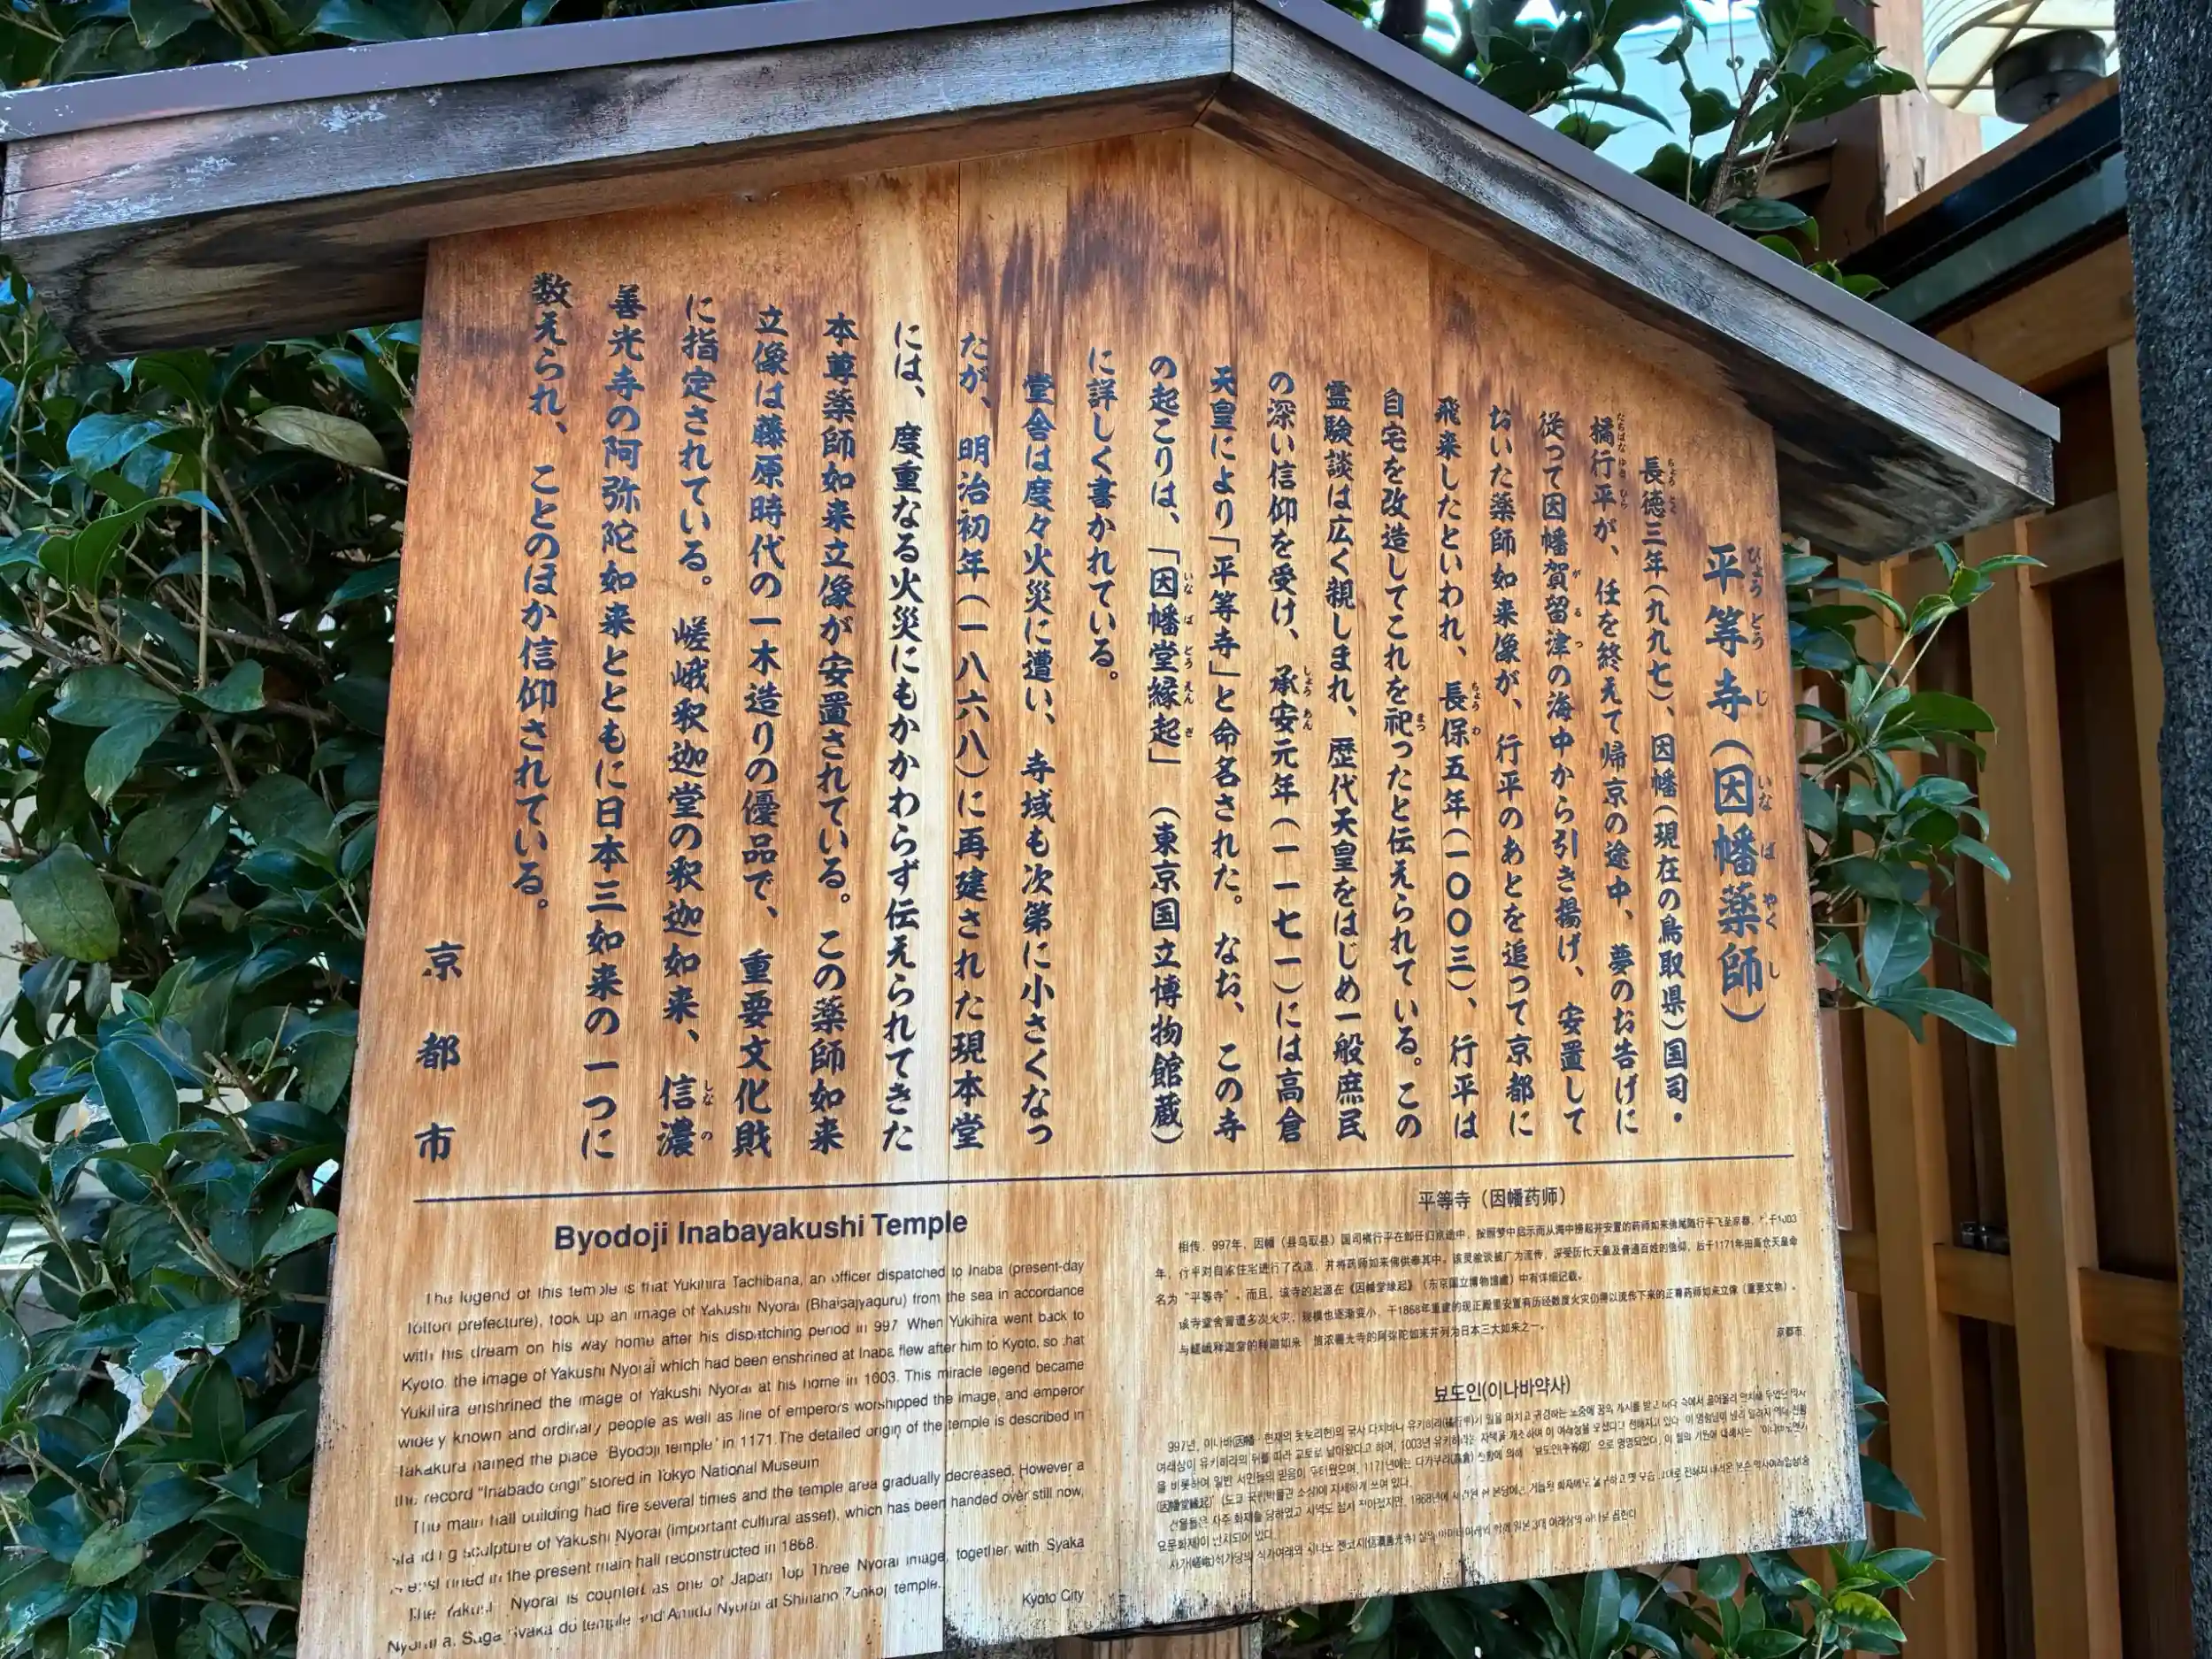 平等寺(因幡薬師)
長徳三年(九九七)、因幡(現在の鳥取県)国司・
橘行平が、任を終えて帰京の途中、夢のお告げに
従って因幡賀留津の海中から引き揚げ、安置して
おいた薬師如来像が、行平のあとを追って京都に
飛来したといわれ、長保五年(一〇〇三)、行平は
自宅を改造してこれを祀ったと伝えられている。この
霊験談は広く親しまれ、歴代天皇をはじめ一般庶民
の深い信仰を受け、承安元年(一一七一)には高倉
天皇により「平等寺」と命名された。なお、この寺
の起こりは、「因幡堂縁起」(東京国立博物館蔵)
に詳しく書かれている。
堂舎は度々火災に遭い、寺域も次第に小さくなっ
たが、明治初年(一八六八)に再建された現本堂
には、度重なる火災にもかかわらず伝えられてきた
本尊薬師如来立像が安置されている。この薬師如来
立像は藤原時代の一木造りの優品で、重要文化財
に指定されている。嵯峨釈迦堂の釈迦如来、信濃
善光寺の阿弥陀如来とともに日本三如来の一つに
数えられ、ことのほか信仰されている。
京都市
Byodoji Inabayakushi Temple
The legend of this temple is that Yukihira Tachibana, an officer dispatched to Inaba (present-day
Tottori prefecture), took up an image of Yakushi Nyorai (Bhaisajyaguru) from the sea in accordance
with his dream on his way home after his dispatching period in 997. When Yukihira went back to
Kyoto, the image of Yakushi Nyorai which had been enshrined at Inaba flew after him to Kyoto, so that
Yukihira enshrined the image of Yakushi Nyorai at his home in 1003. This miracle legend became
widely known and ordinary people as well as line of emperors worshipped the image, and emperor
Takakura named the place "Byodoji temple" in 1171. The detailed origin of the temple is described in
the record "Inabado engi" stored in Tokyo National Museum
The main hall building had fire several times and the temple area gradually decreased. However a
standing sculpture of Yakushi Nyorai (important cultural asset), which has been handed over still now,
is enshrined in the present main hall reconstructed in 1868.
The Yakushi Nyorai is counted as one of Japan Top Three Nyorai image, together with Syaka
Nyorai at Saga Syaka do temple and Amida Nyorai at Shinano Zenkoj temple.
Kyoto City
平等寺（因幡药师）
相传，997年，因幡（县鸟取县）国司橘行平在卸任归京途中，按照梦中启示而从海中捞起并安置的药师如来像尾随行平飞至京都，于1003
年，行平对自家住宅进行了改造，并将药师如来佛供奉其中。该灵验谈被广为流传，深受历代天皇及普通百姓的信仰，后于1171年由高仓天皇命
名为“平等寺”。而且，该寺的起源在《因幡堂缘起》（东京国立博物馆藏）中有详细记载。
该寺堂舍曾遭多次火灾，规模也逐渐变小，于1868年重建的现正殿里安置有历经数度火灾仍得以流传下来的正尊药师如来立像（重要文物）。
与嵯峨释迦堂的释迦如来 信浓善光寺的阿弥陀如来并列为日本三大如来之一。
京都市
뵤도인(이나바약사)
997년, 이나바(因幡